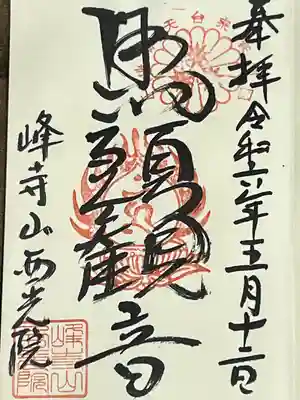 奉拝 令和六年五月十二日
馬頭観音
峰寺山西光院
天台宗
峰寺山西光院